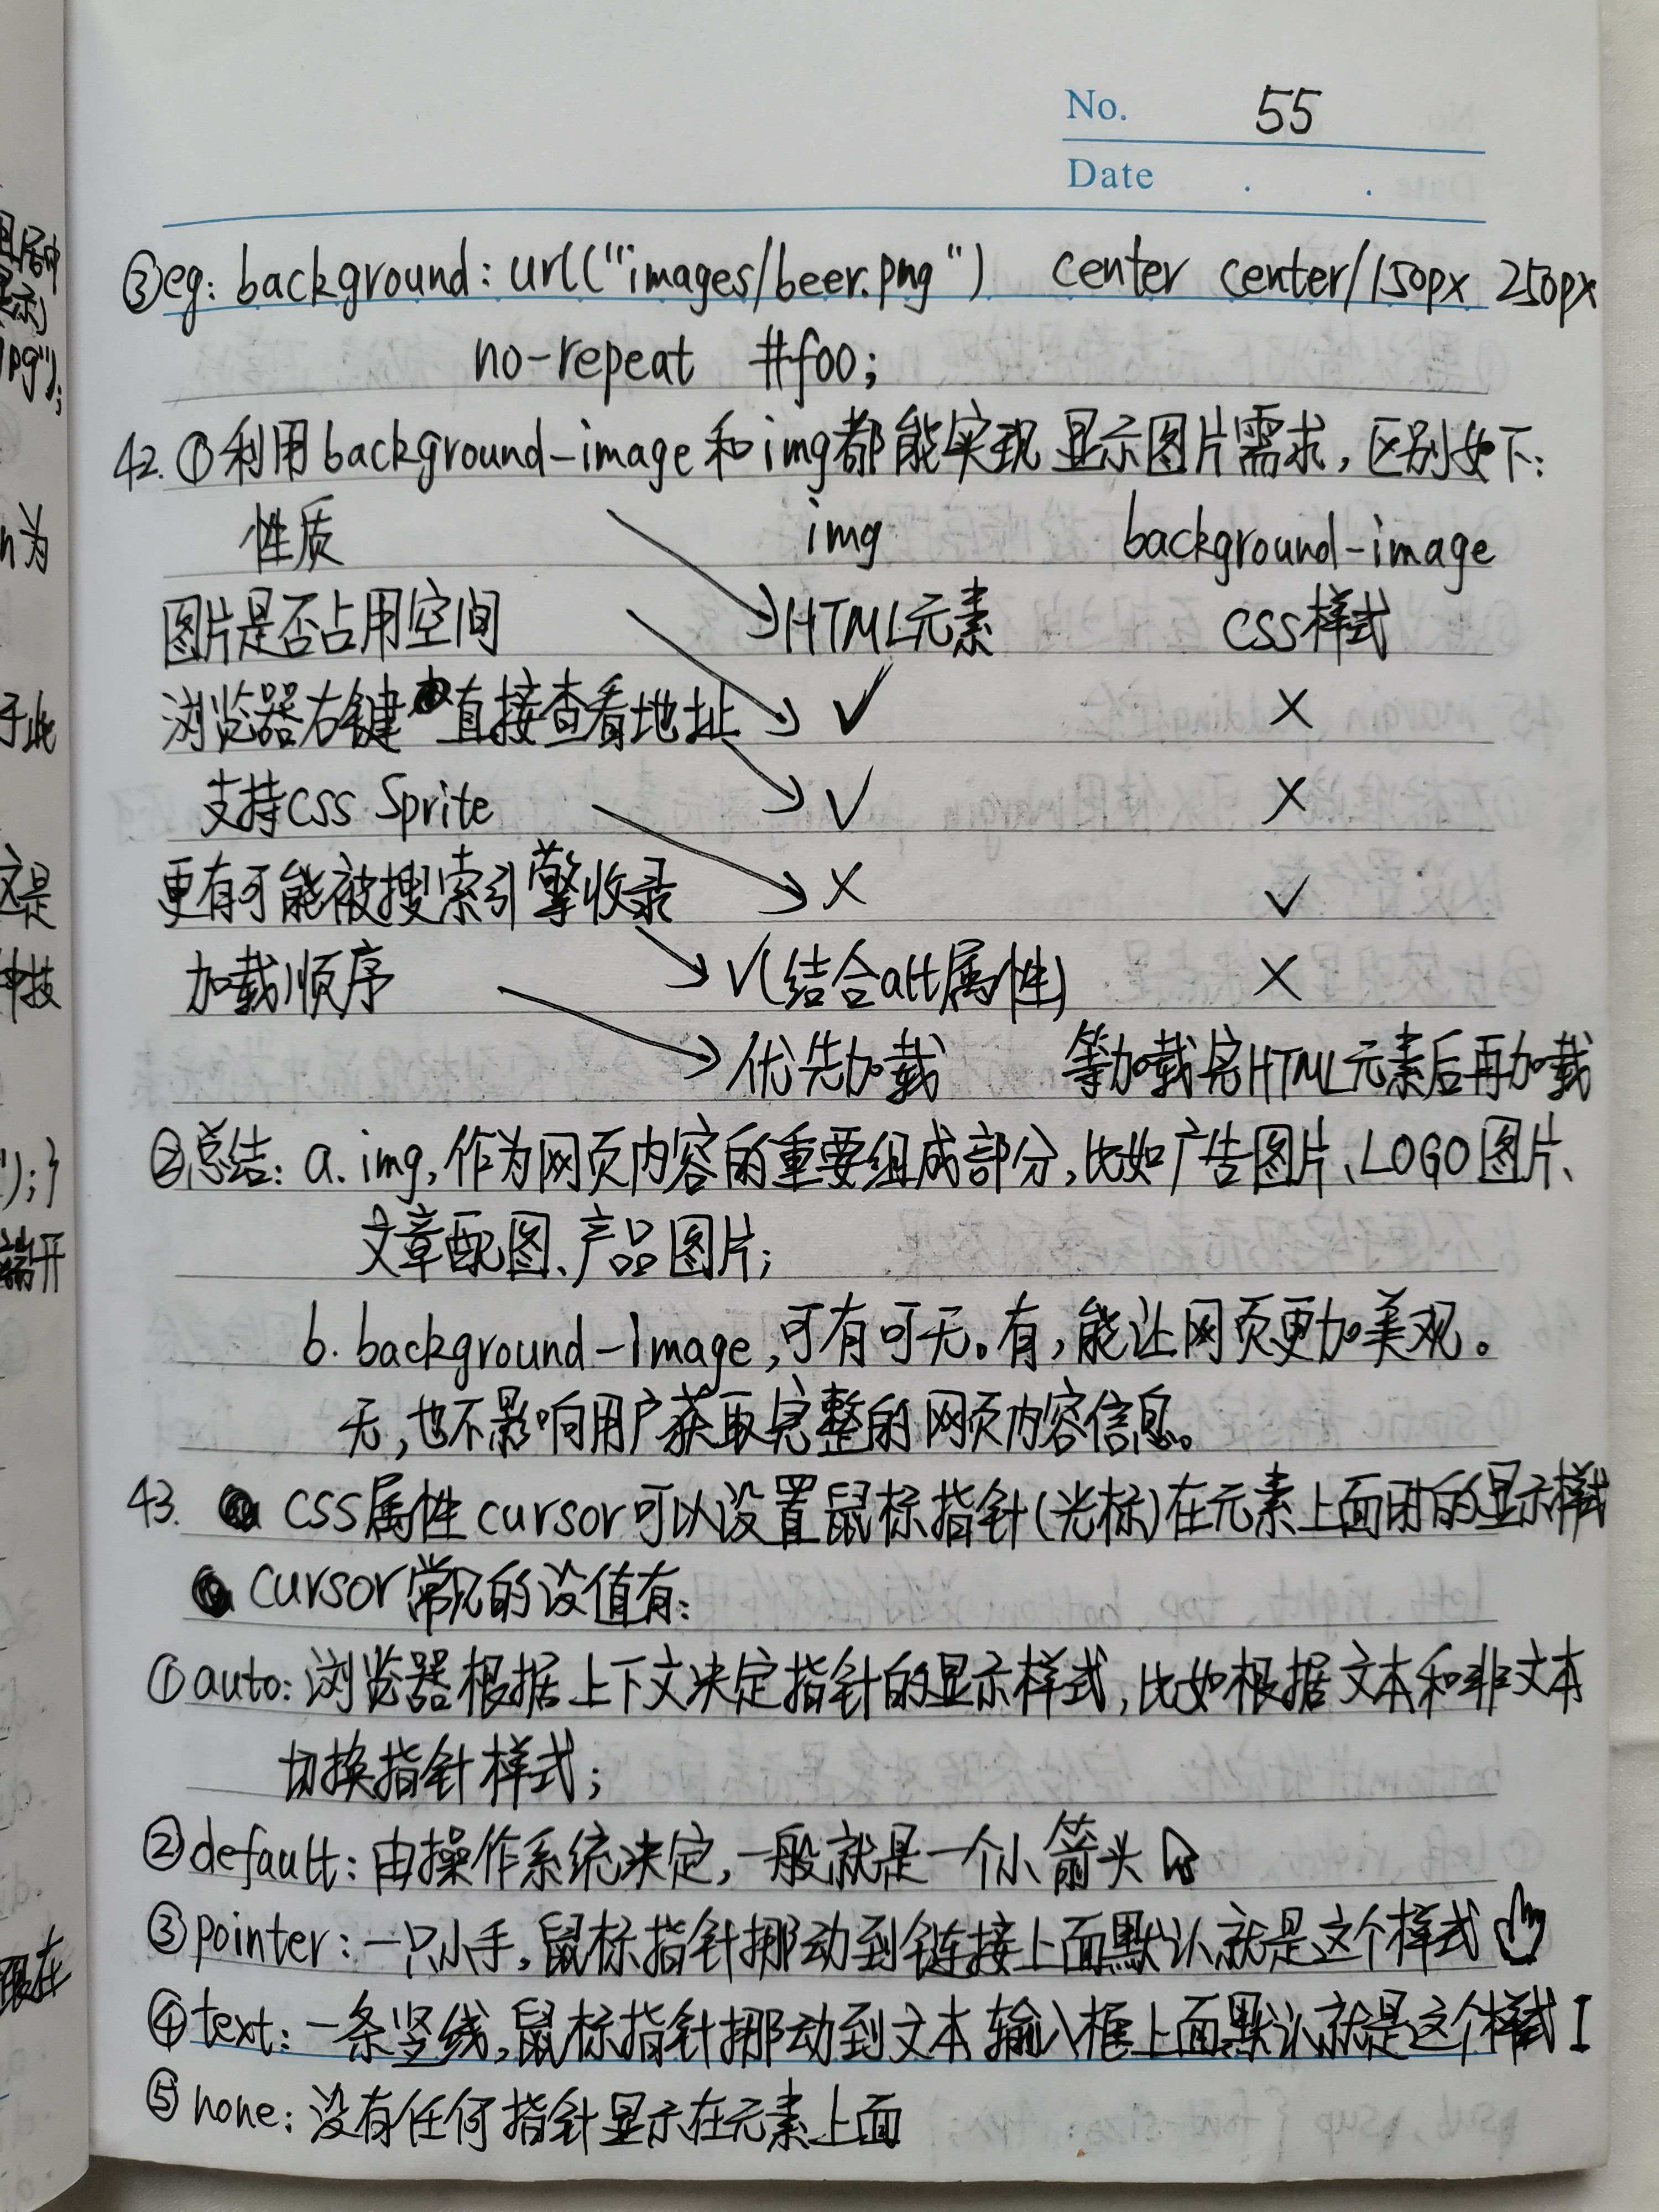 No. 55
Date . .
③eg: background: url("images/beer.png") center center/150px 250px
no-repeat #f00;
42. ①利用background-image和img都能实现显示图片需求,区别如下:
性质 img background-image
图片是否占用空间 HTML元素 CSS样式
浏览器右键直接查看地址 ✓ ×
支持CSS Sprite ✓ ×
更有可能被搜索引擎收录 × ✓
加载顺序 ✓(结合alt属性) ×
优先加载 等加载完HTML元素后再加载
②总结: a. img,作为网页内容的重要组成部分,比如广告图片、LOGO图片、
文章配图、产品图片;
b. background-image,可有可无。有,能让网页更加美观。
无,也不影响用户获取完整的网页内容信息。
43. CSS属性cursor可以设置鼠标指针(光标)在元素上面时的显示样式
cursor常见的设值有:
①auto: 浏览器根据上下文决定指针的显示样式,比如根据文本和非文本
切换指针样式;
②default: 由操作系统决定,一般就是一个小箭头
③pointer: 一只小手,鼠标指针挪动到链接上面默认就是这个样式
④text: 一条竖线,鼠标指针挪动到文本输入框上面默认就是这个样式 I
⑤none: 没有任何指针显示在元素上面